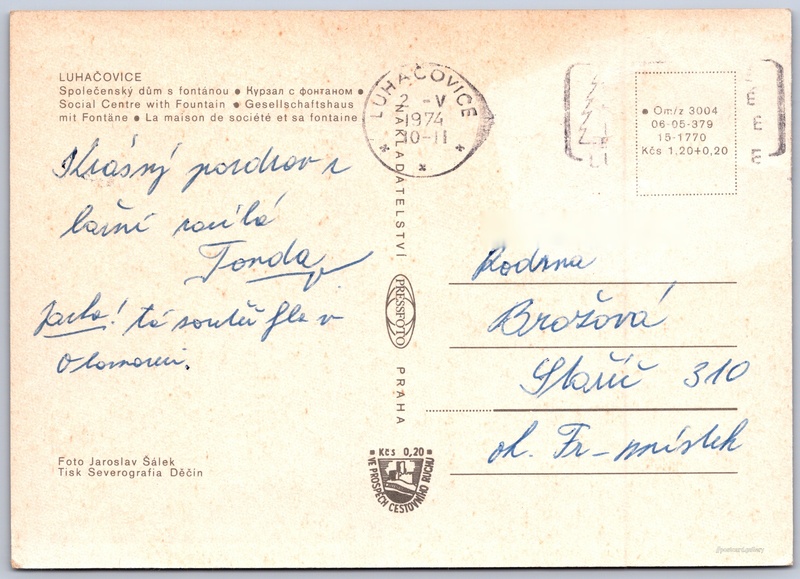 LUHAČOVICE
Společenský dům s fontánou ● Курзал с фонтаном ●
Social Centre with Fountain ● Gesellschaftshaus
mit Fontäne ● La maison de société et sa fontaine
Krásný pozdrav z
lázní posílá
Tonda
Jarko! ta soutěž je v
Olomouci.
Foto Jaroslav Šálek
Tisk Severografia Děčín
LUHAČOVICE
2 -V
1974
10-11
NAKLADATELSTVÍ
PRESSFOTO
PRAHA
● Kčs 0,20 ●
VE PROSPĚCH CESTOVNÍHO RUCHU
● Om/z 3004
06-05-379
15-1770
Kčs 1,20+0,20
Rodina
Brožová
Staříč 310
ok. Fr-místek